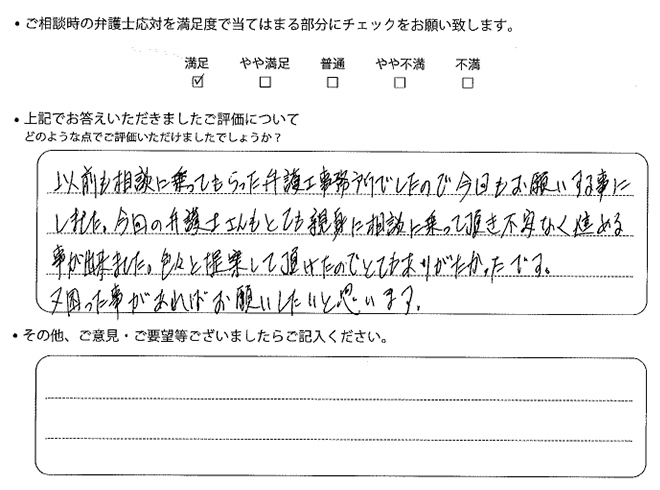 ・ご相談時の弁護士応対を満足度で当てはまる部分にチェックをお願い致します。
満足 やや満足 普通 やや不満 不満
☑ □ □ □ □
・上記でお答えいただきましたご評価について
どのような点でご評価いただけましたでしょうか?
以前も相談に乗ってもらった弁護士事務所でしたので今回もお願いする事に
しました。今回の弁護士さんもとても親身に相談に乗って頂き不安なく進める
事が出来ました。色々と提案して頂けたのでとてもありがたかったです。
又困った事があればお願いしたいと思います。
・その他、ご意見・ご要望等ございましたらご記入ください。